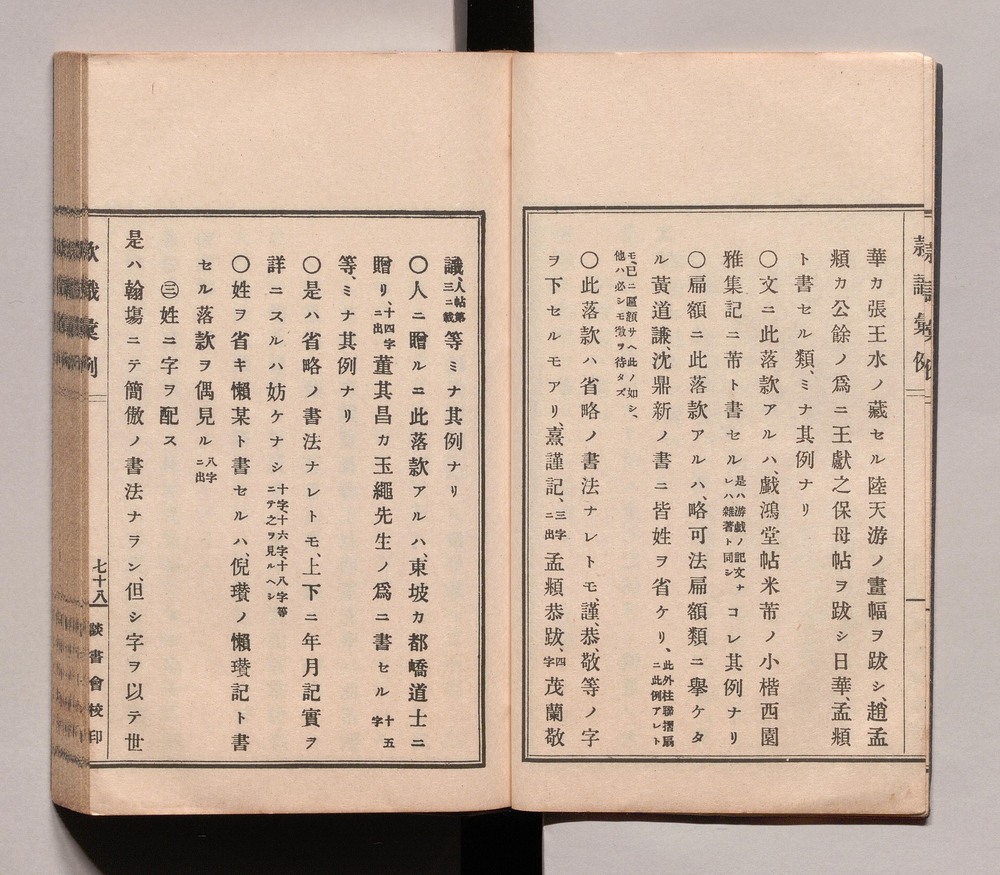 華カ張王水ノ藏セル陸天游ノ畫幅ヲ跋シ、趙孟
頫カ公餘ノ爲ニ王獻之保母帖ヲ跋シ日華、孟頫
ト書セル類、ミナ其例ナリ
〇文ニ此落款アルハ、戲鴻堂帖米芾ノ小楷西園
雅集記ニ芾ト書セル是ハ游戲ノ記文ナレハ雜著ト同シコレ其例ナリ
〇扁額ニ此落款アルハ、略可法扁額類ニ擧ケタ
ル黃道謙、沈鼎新ノ書ニ皆姓ヲ省ケリ、此外柱聯摺扇ニ此例アレト
モ、已ニ匾額サヘ此ノ如シ、他ハ必シモ徵ヲ待タズ
〇此落款ハ省略ノ書法ナレトモ、謹、恭、敬等ノ字
ヲ下セルモアリ、熹謹記、三字ニ出孟頫恭跋、四字茂蘭敬
識、人帖第三ニ載等ミナ其例ナリ
〇人ニ贈ルニ此落款アルハ、東坡カ都嶠道士ニ
贈リ、十四字ニ出董其昌カ玉繩先生ノ爲ニ書セル十五字
等、ミナ其例ナリ
〇是ハ省略ノ書法ナレトモ、上下ニ年月記實ヲ
詳ニスルハ妨ケナシ十字、十六字、十八字等ニテ之ヲ見ルヘシ
〇姓ヲ省キ懶某ト書セルハ、倪瓚ノ懶瓚記ト書
セル落款ヲ偶見ル八字ニ出
㊂姓ニ字ヲ配ス
是ハ翰塲ニテ簡傲ノ書法ナラン、但シ字ヲ以テ世
款識彙例
七十八
談書會校印